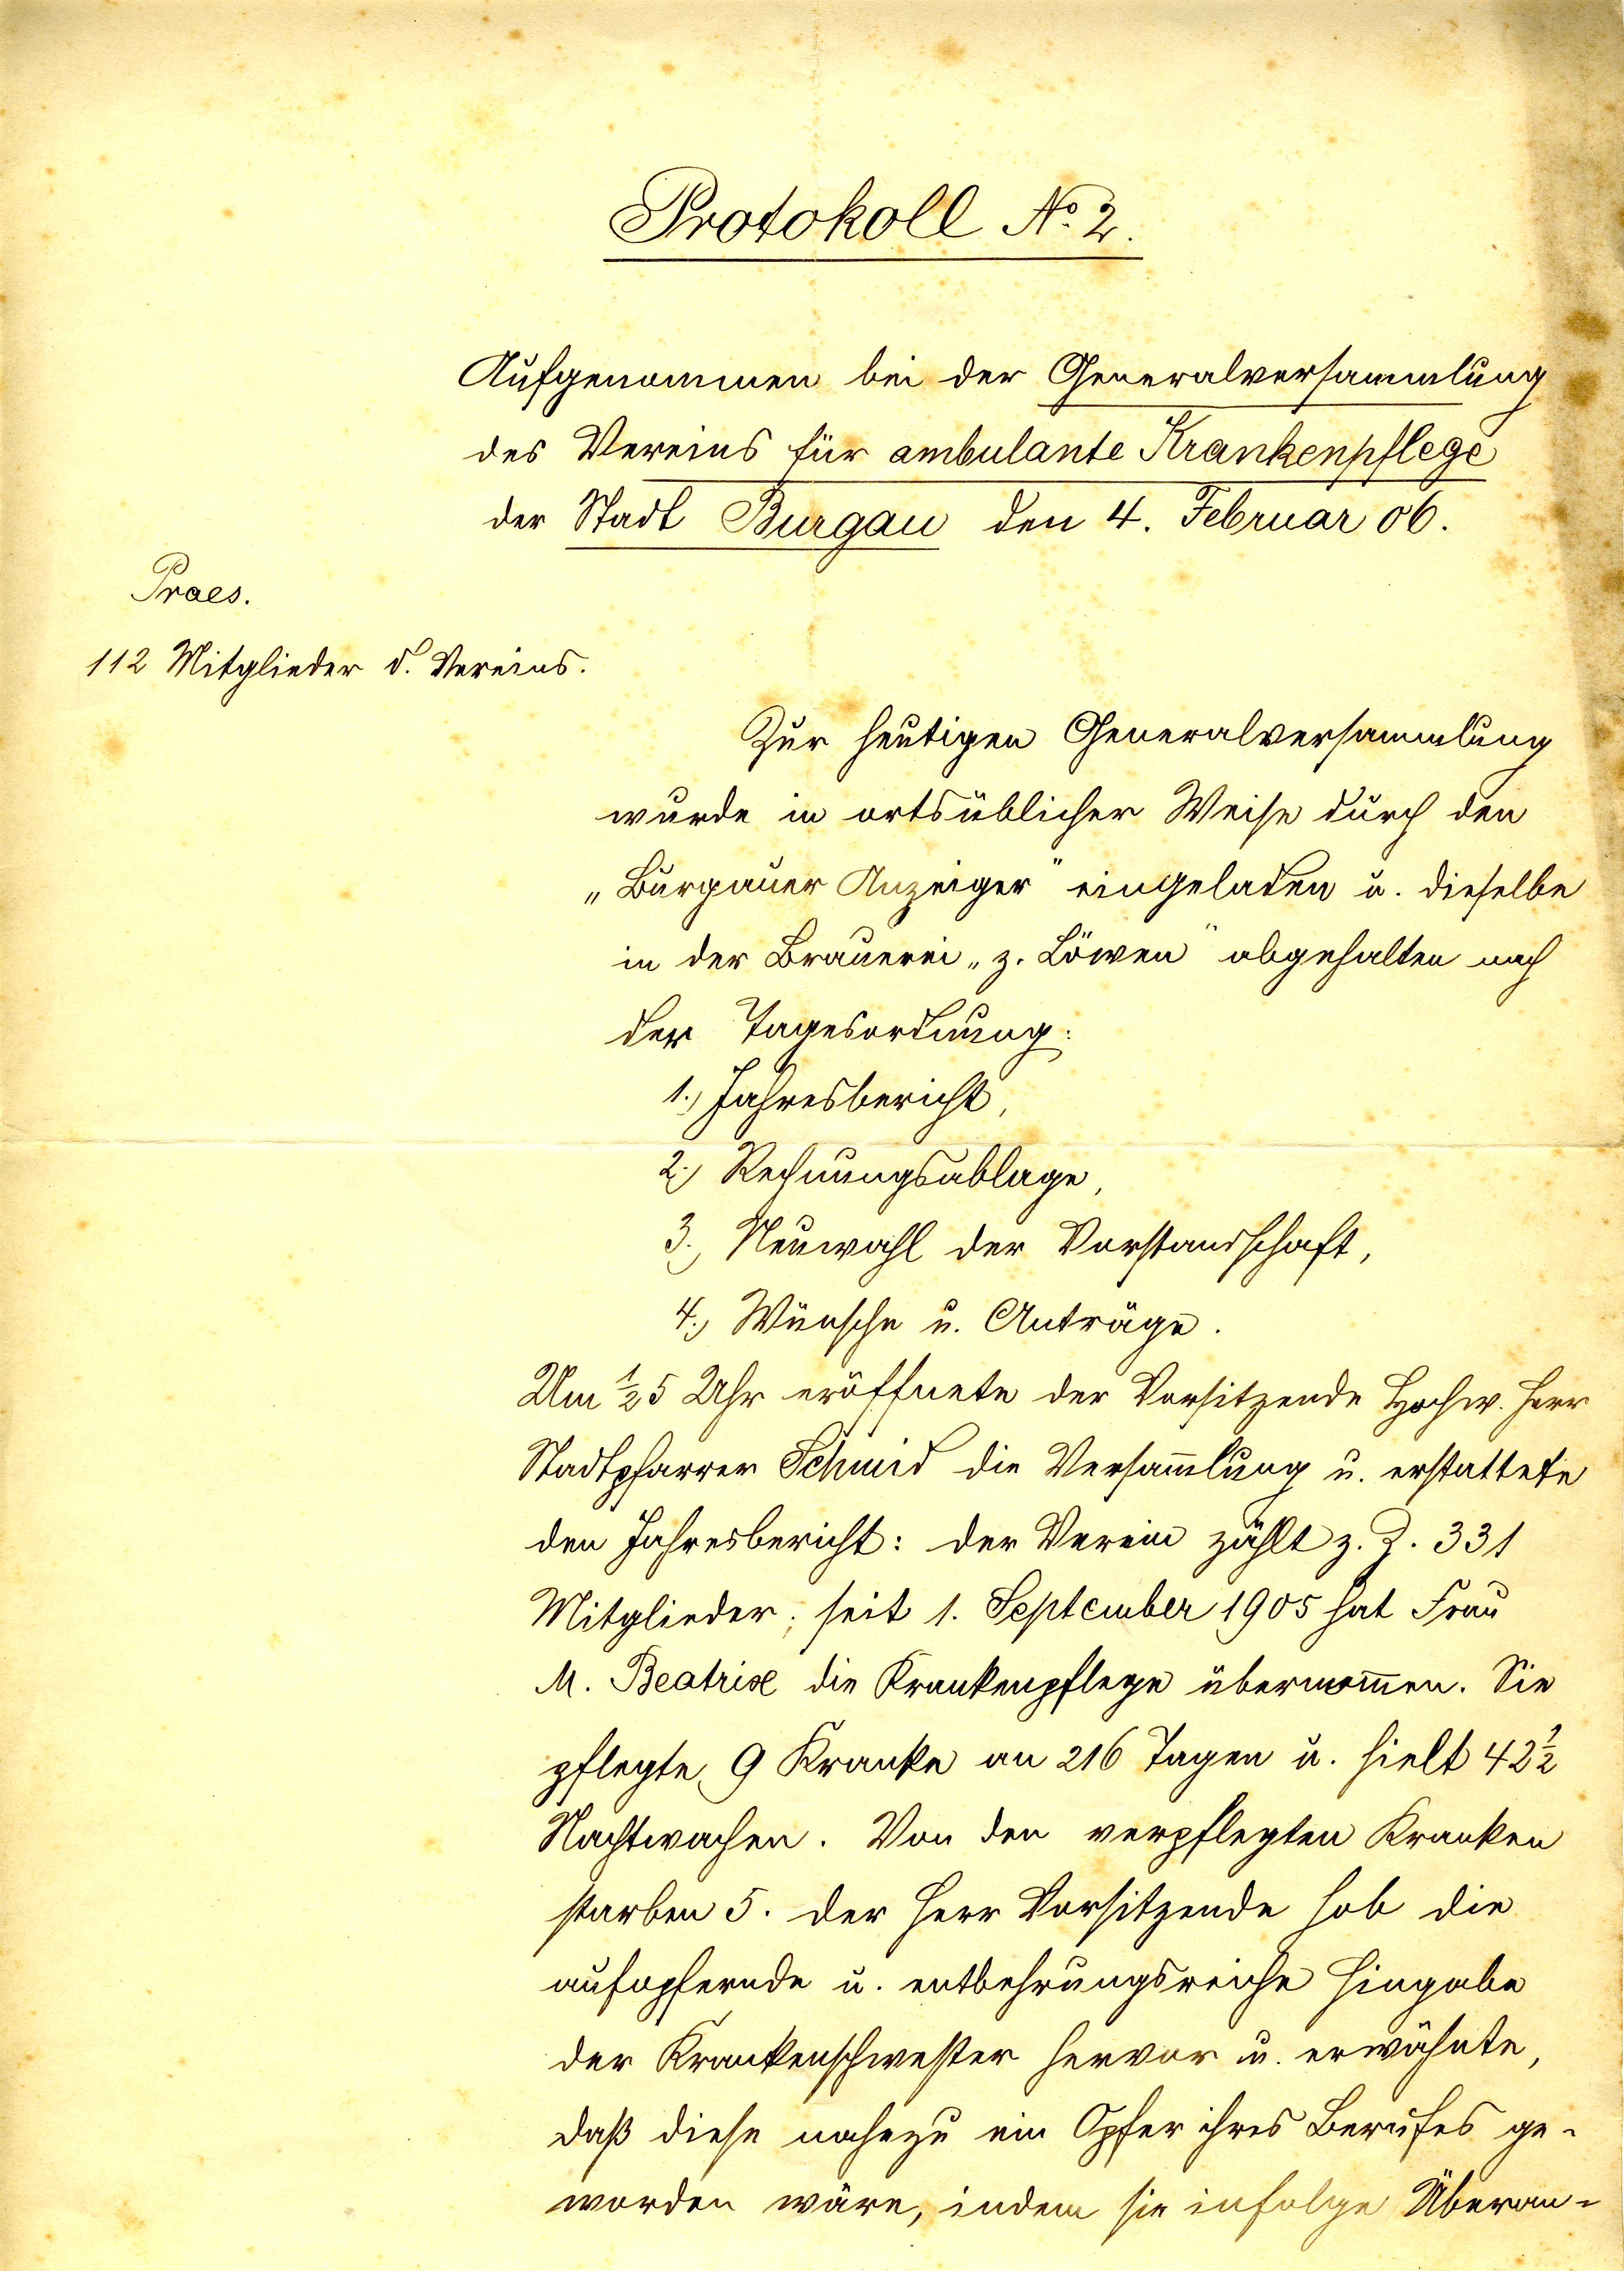 Protokoll No. 2.
Aufgenommen bei der Generalversammlung
des Vereins für ambulante Krankenpflege
der Stadt Burgau den 4. Februar 06.
Praes.
112 Mitglieder d. Vereins.
Zur heutigen Generalversammlung
wurde in ortsüblicher Weise durch den
„Burgauer Anzeiger" eingeladen u. dieselbe
in der Brauerei „z. Löwen" abgehalten nach
der Tagesordnung:
1.) Jahresbericht,
2.) Rechnungsablage,
3.) Neuwahl der Vorstandschaft,
4.) Wünsche u. Anträge.
Um ½5 Uhr eröffnete der Vorsitzende Hochw. Herr
Stadtpfarrer Schmid die Versam̅lung u. erstattete
den Jahresbericht: der Verein zählt z. Z. 331
Mitglieder; seit 1. September 1905 hat Frau
M. Beatrix die Krankenpflege übernom̅en. Sie
pflegte 9 Kranke an 216 Tagen u. hielt 42½
Nachtwachen. Von den verpflegten Kranken
starben 5. Der Herr Vorsitzende hob die
aufopfernde u. entbehrungsreiche Hingabe
der Krankenschwester hervor u. erwähnte,
daß diese nahezu ein Opfer ihres Berufes ge-
worden wäre, indem sie infolge Überan-